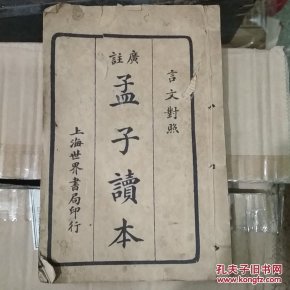 言文對照
廣註
孟子讀本
上海世界書局印行
孔夫子旧书网